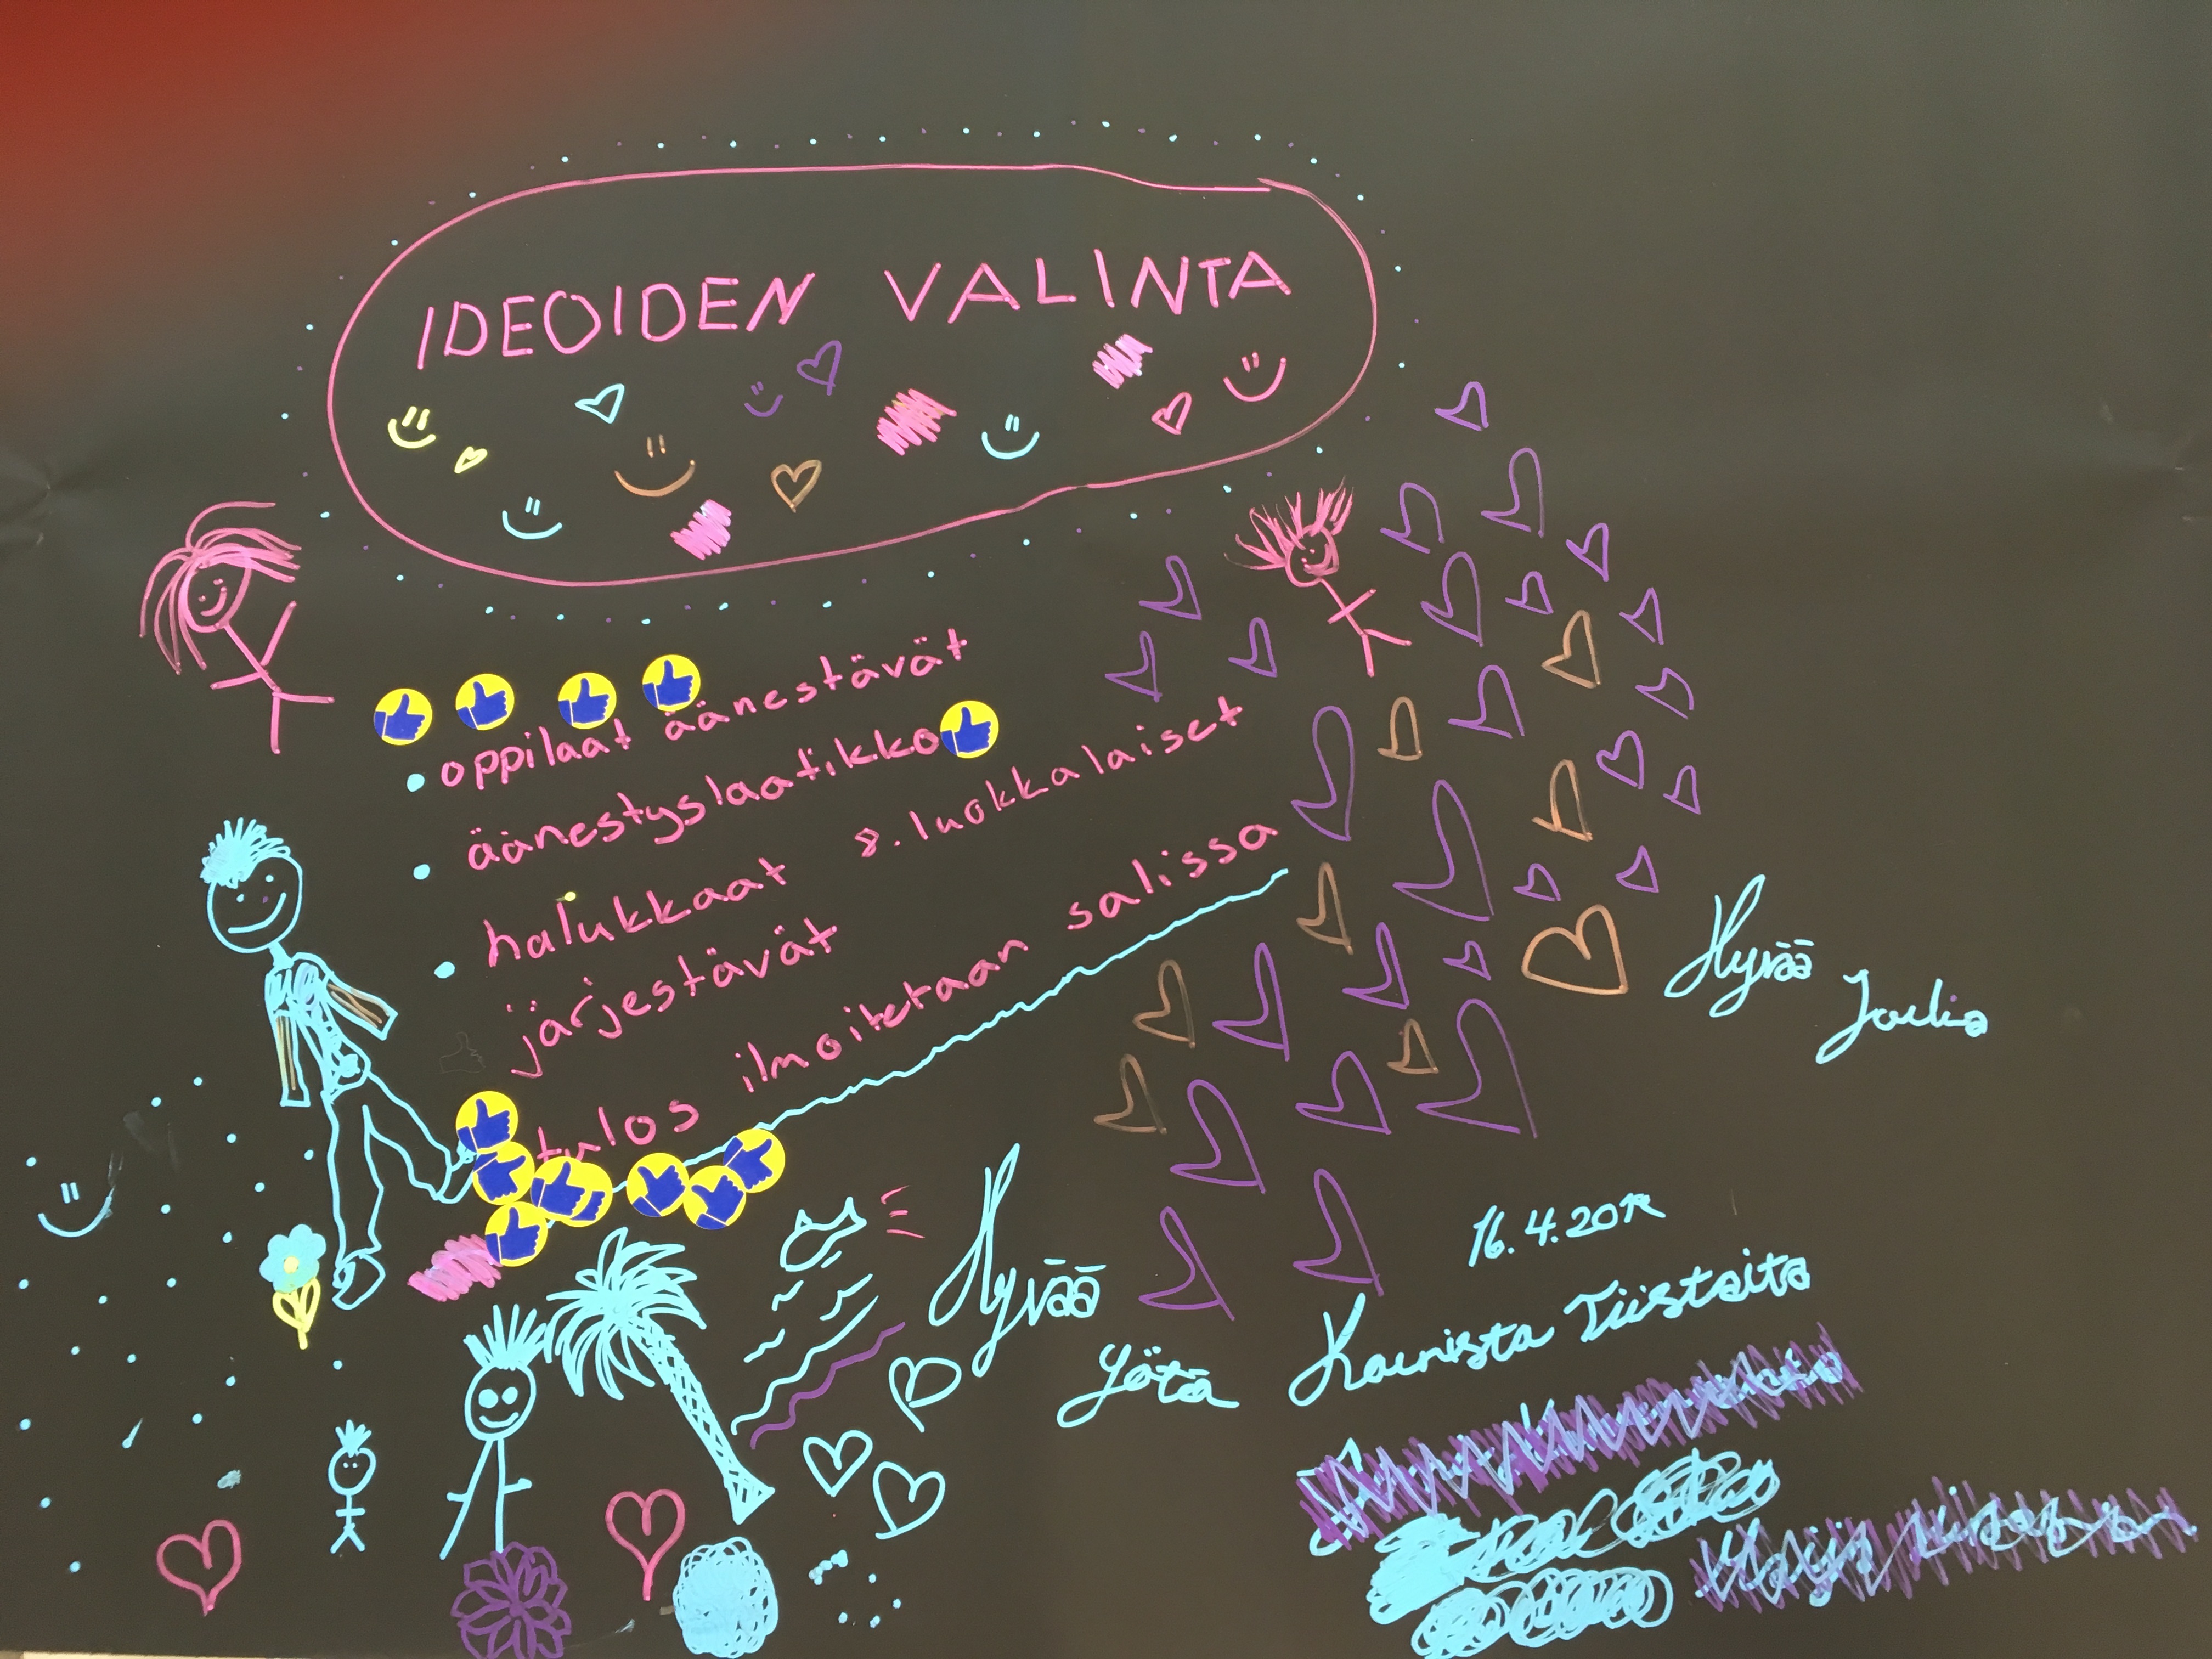 IDEOIDEN VALINTA
oppilaat äänestävät
äänestyslaatikko
halukkaat 8. luokkalaiset
järjestävät
tulos ilmoitetaan salissa
Hyvää
Joulua
Hyvää
Yötä
16.4.2019
Kaunista Tiistaita